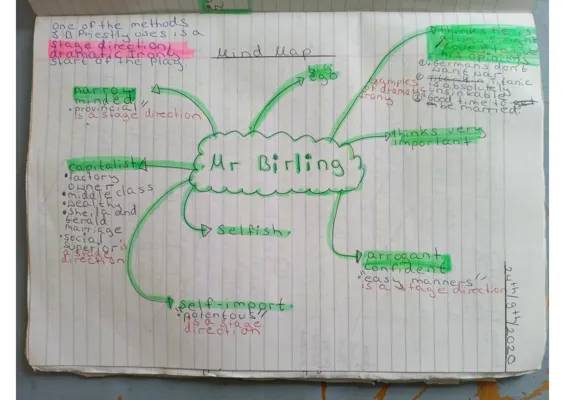 one of the methods
J.B Priestly uses is a
stage direction,
dramatic irony
start of the play
Mind Map
Mr Birling
big
ego
thinks he is
Germans don't
want war
Titanic
is absolutely
unsinkable
good time to
be married
examples
of dramatic
irony
thinks very
important
arrogant
confident
"easy manners"
is a stage direction
selfish
self-import
"potentous"
is a stage
direction
capitalist
• factory
owner
• middle class
• wealthy
• sheila and
Gerald
marriage
• social
superior is
a stage
direction
narrow
minded
• "provincial"
is a stage direction
24th/9th/2020